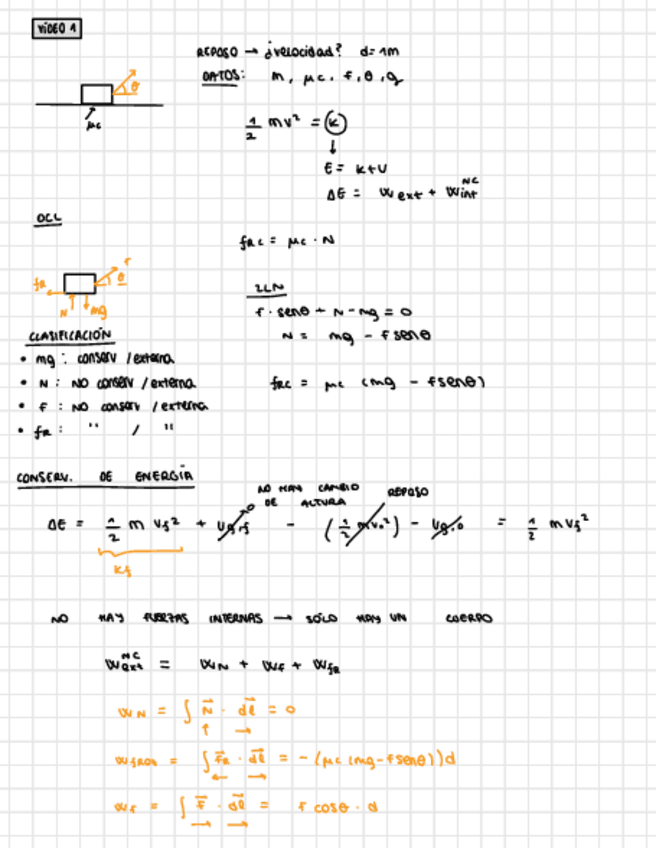 VÍDEO 1
REPOSO → ¿velocidad? d=1m
DATOS: m, μc, f, θ, g
θ
μc
1/2 mv² = K
↓
E = K+U
ΔE = W ext + W int NC
DCL
frc = μc · N
F
θ
fR
N mg
2LN
F · senθ + N - mg = 0
N = mg - F senθ
frc = μc (mg - Fsenθ)
CLASIFICACIÓN
• mg : conserv / externa
• N : NO conserv / externa
• F : NO conserv / externa
• fR : " / "
CONSERV. DE ENERGÍA
NO HAY CAMBIO DE ALTURA
REPOSO
ΔE = 1/2 m vf² + Ug,f - (1/2 mv₀²) - Ug,0 = 1/2 m vf²
Kf
NO HAY FUERZAS INTERNAS → SOLO HAY UN CUERPO
W ext NC = WN + WF + WfR
WN = ∫ N⃗ · dl⃗ = 0
WfROZ = ∫ fR⃗ · dl⃗ = -(μc (mg-Fsenθ))d
WF = ∫ F⃗ · dl⃗ = F cosθ · d